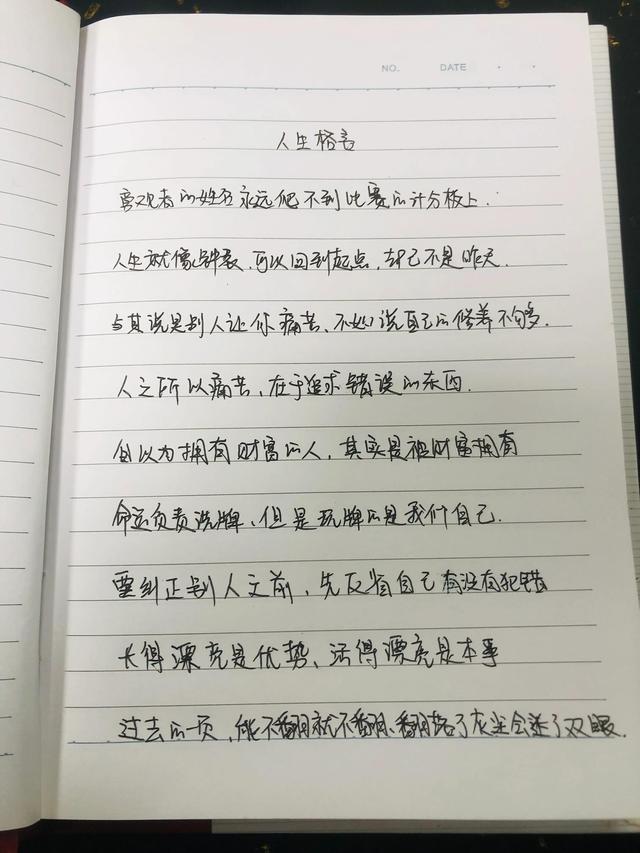 NO.
DATE
人生格言
旁观者的姓名永远爬不到比赛的计分板上.
人生就像钟表,可以回到起点,却已不是昨天.
与其说是别人让你痛苦、不如说自己的修养不够多.
人之所以痛苦、在于追求错误的东西.
自以为拥有财富的人,其实是被财富拥有
命运负责洗牌、但是玩牌的是我们自己.
要纠正别人之前,先反省自己有没有犯错
长得漂亮是优势、活得漂亮是本事
过去的一页,能不翻就不翻、翻落了灰尘会迷了双眼.